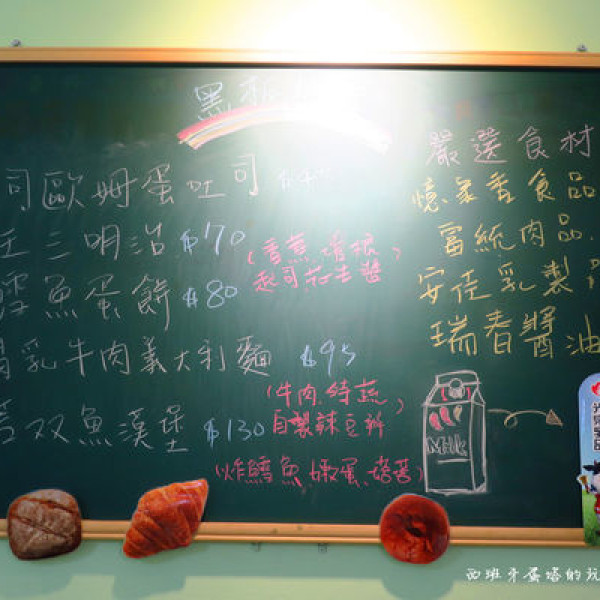 黑板
司歐姆蛋吐司
三明治 $70
(香蕉.培根
起司花生醬)
鱈魚蛋餅 $80
乳牛肉義大利麵 $95
(牛肉.時蔬
自製辣豆瓣)
双魚漢堡 $130
(炸鱈魚.嫩蛋.培著)
嚴選食材
憶家香食品
富統肉品.
安佳乳製
瑞春醬油
Milk
西班牙蛋塔的玩